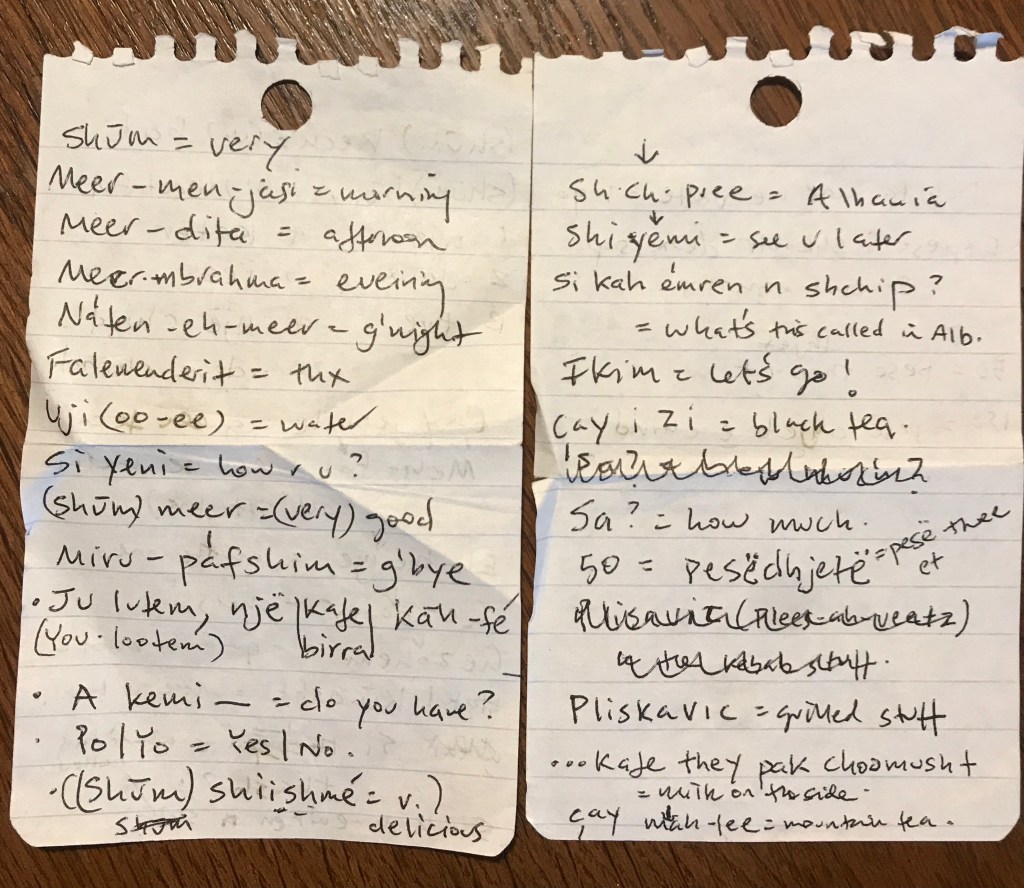 Shūm = very
Meer-men-jasi = morning
Meer-dita = afternoon
Meer-mbrahma = eveining
Náten-eh-meer = g'night
Falemenderit = thx
Uji (oo-ee) = water
Si yeni = how r u?
(shūm) meer = (very) good
Miru-páfshim = g'bye
• Ju lutem, një |kafe| kāh-fé
(You-lootem) |birra|
• A kemi — = do you have?
• Po/Yo = Yes/No.
• ((Shūm) shiishmé = v.)
delicious
↓
Sh·ch·pree = Albania
Shi yemi = see u later
Si kah émren n shchip?
= what's this called in Alb.
Ikim = let's go!
Çay i zi = black tea.
Sa? = how much.
50 = pesëdhjetë = pesë thee et
(Plees-ah-veatz)
kabab stuff.
Pliskavic = grilled stuff
... Kafe they pak choomusht
= milk on the side.
çay mah-lee = mountain tea.